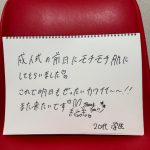 成人式の前日にモチモチ肌に
してもらいました
これで明日もぜったいカワイイ〜〜!!
また来たいです
Thank you!
20代 学生